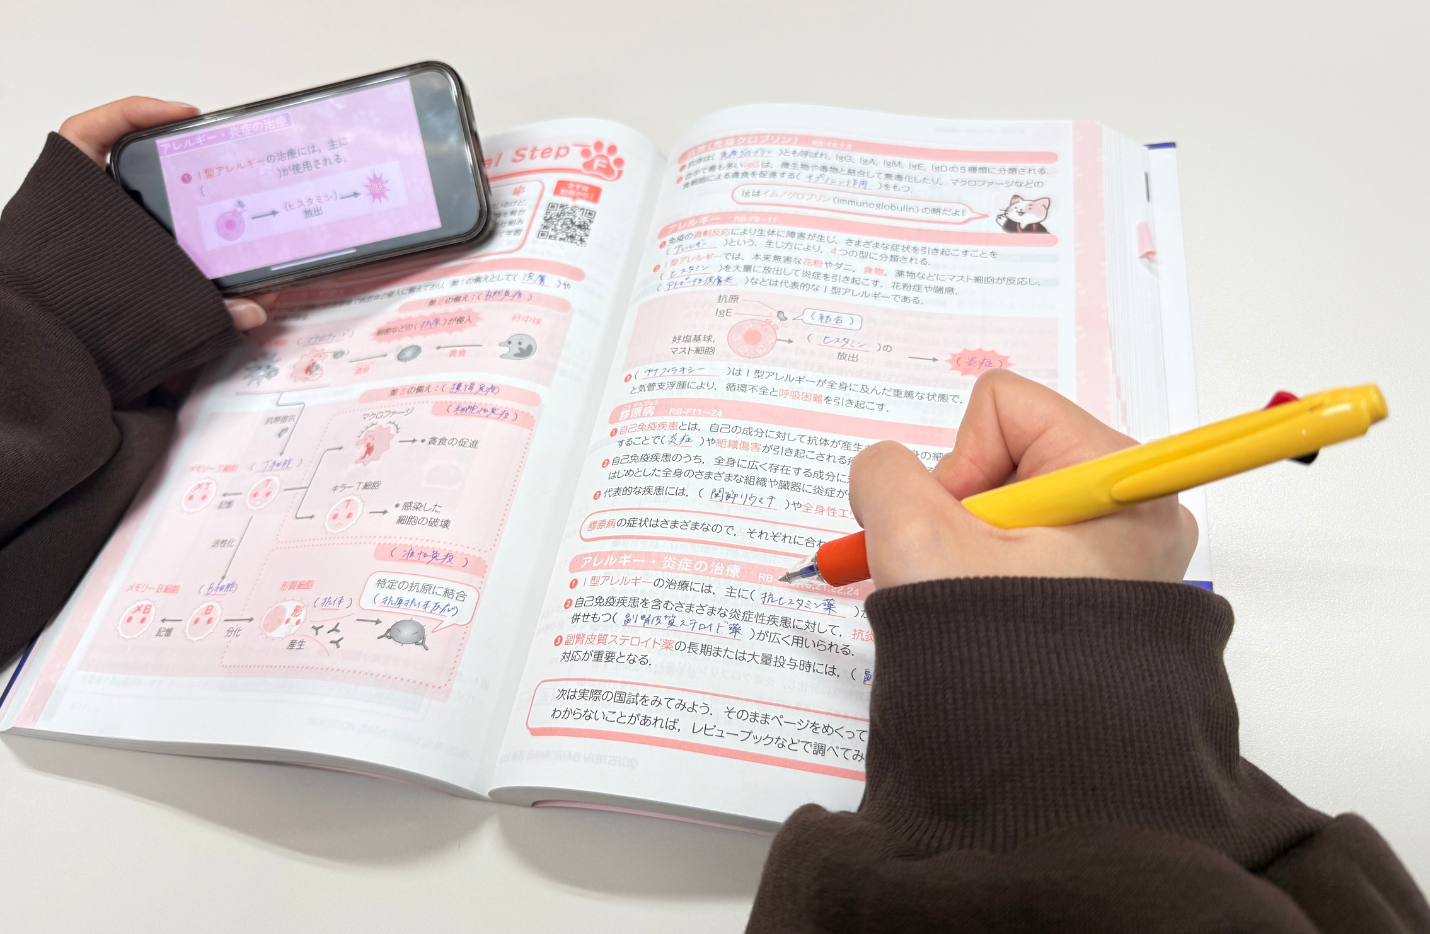 アレルギー・炎症の治療
❶ Ⅰ型アレルギーの治療には，主に
(　　　　)が使用される．
(ヒスタミン)
放出
炎症
al Step
F
まずは
第1の備えとして(皮膚)や
第2の備え：(自然免疫)
(抗原)が侵入
好中球
貪食
第3の備え：(獲得免疫)
(細胞性免疫)
抗原提示
マクロファージ
•貪食の促進
メモリーT細胞
(T細胞)
記憶
キラーT細胞
•感染した
細胞の破壊
活性化
(液性免疫)
メモリーB細胞
(B細胞)
形質細胞
(抗体)
特定の抗原に結合
(抗原抗体反応)
MB
B
記憶
分化
産生
抗体(免疫グロブリン)
❶ 抗体は(免疫グロブリン)とも呼ばれ，IgG，IgA，IgM，IgE，IgDの5種類に分類される．
血中で最も多いIgGは，微生物や毒物と結合して無毒化したり，マクロファージなどの
食細胞による貪食を促進する(オプソニン作用)をもつ．
Igはイムノグロブリン(immunoglobulin)の略だよ！
アレルギー RB-F9〜11
❶ 免疫の過剰反応により生体に障害が生じ，さまざまな症状を引き起こすことを
(アレルギー)という．生じ方により，4つの型に分類される．
❷ Ⅰ型アレルギーでは，本来無害な花粉やダニ，食物，薬物などにマスト細胞が反応し，
(ヒスタミン)を大量に放出して炎症を引き起こす．花粉症や喘息，
(アトピー性皮膚炎)などは代表的なⅠ型アレルギーである．
抗原
IgE
(結合)
好塩基球，
マスト細胞
(ヒスタミン)の
放出
(炎症)
❸ (アナフィラキシー)はⅠ型アレルギーが全身に及んだ重篤な状態で，
と気管支浮腫により，循環不全と呼吸困難を引き起こす．
膠原病 RB-F11〜24
❶ 自己免疫疾患とは，自己の成分に対して抗体が産生さ
することで(炎症)や組織傷害が引き起こされる
❷ 自己免疫疾患のうち，全身に広く存在する成分に
はじめとした全身のさまざまな組織や臓器に炎症が
❸ 代表的な疾患には，(関節リウマチ)や全身性エリ
膠原病の症状はさまざまなので，それぞれに合わ
アレルギー・炎症の治療 RB-
❶ Ⅰ型アレルギーの治療には，主に(抗ヒスタミン薬)が
❷ 自己免疫疾患を含むさまざまな炎症性疾患に対して，抗炎
併せもつ(副腎皮質ステロイド薬)が広く用いられる．
❸ 副腎皮質ステロイド薬の長期または大量投与時には，(副
対応が重要となる．
次は実際の国試をみてみよう．そのままページをめくって
わからないことがあれば，レビューブックなどで調べてみ